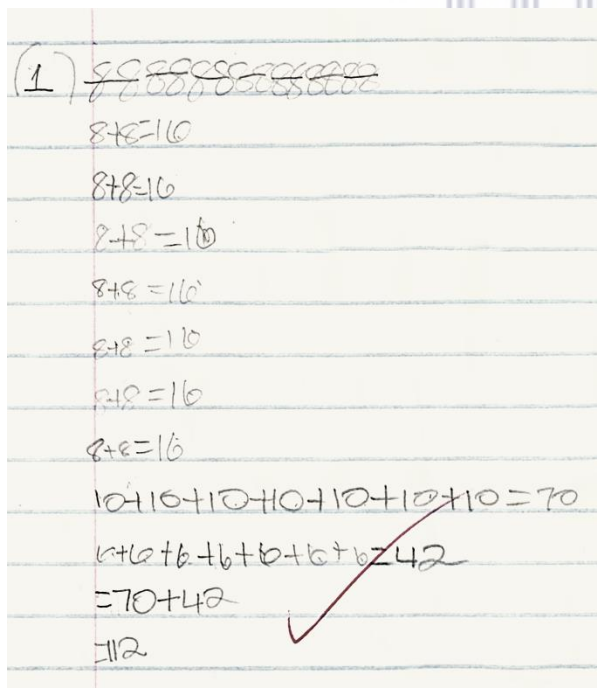 (1) 8 8 8 8 8 8 8 8 8 8 8 8 8 8
8+8=16
8+8=16
8+8=16
8+8=16
8+8=16
8+8=16
8+8=16
10+10+10+10+10+10+10=70
6+6+6+6+6+6+6=42
=70+42
=112